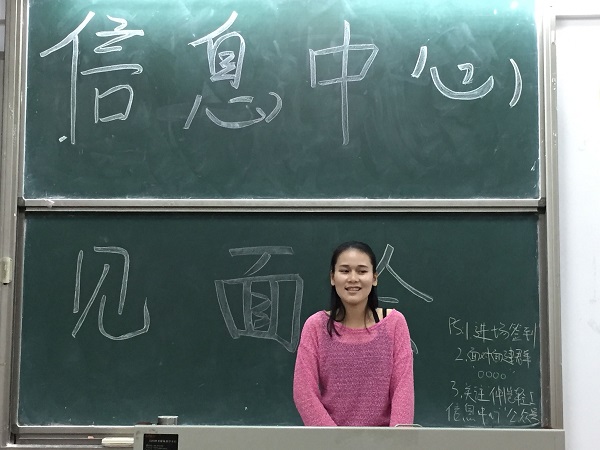 信息中心
见面会
PS 1.进场签到
2.面对面建群
"0000"
3.关注
信息中心"公众号